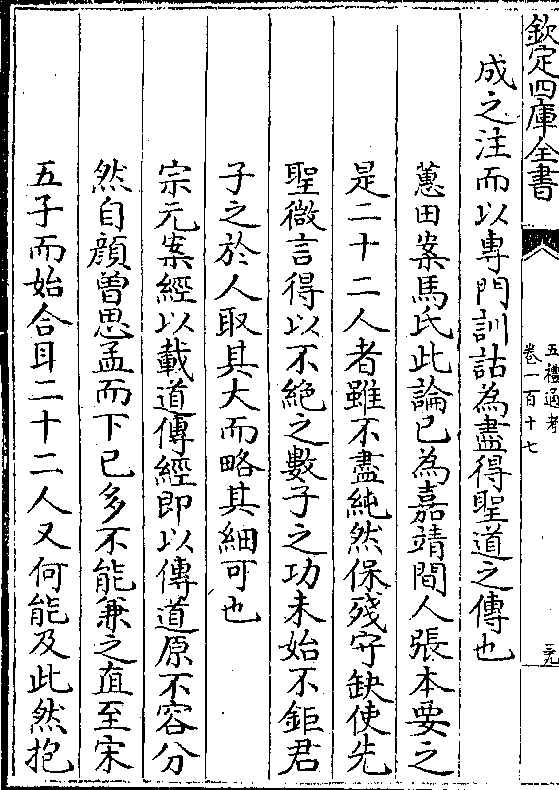 欽定四庫全書
五禮通考
卷一百十七
三九
成之注而以專門訓詁為盡得聖道之傳也
蕙田案馬氏此論已為嘉靖間人張本要之
是二十二人者雖不盡純然保殘守缺使先
聖微言得以不絶之數子之功未始不鉅君
子之於人取其大而略其細可也
宗元案經以載道傳經即以傳道原不容分
然自顔曾思孟而下已多不能兼之直至宋
五子而始合耳二十二人又何能及此然抱